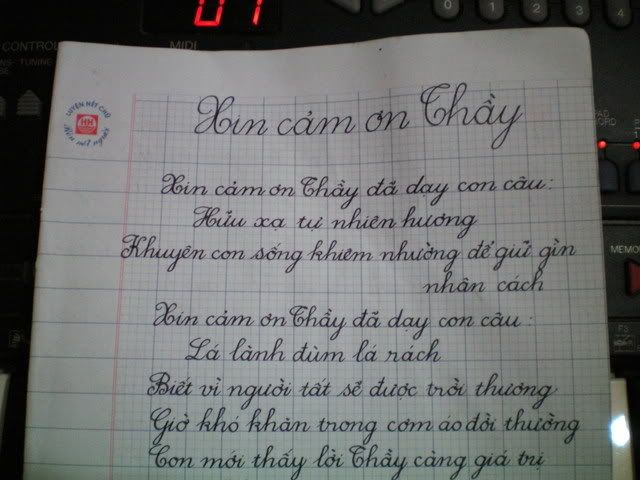 01
CONTROL
MIDI
TUNING
0 1 2 3 4
LUYỆN NÉT CHỮ
Rèn nết người
Xin cảm ơn Thầy
Xin cảm ơn Thầy đã dạy con câu:
Hữu xạ tự nhiên hương
Khuyên con sống khiêm nhường để giữ gìn
nhân cách
Xin cảm ơn Thầy đã dạy con câu:
Lá lành đùm lá rách
Biết vì người tất sẽ được trời thương
Giờ khó khăn trong cơm áo đời thường
Con mới thấy lời Thầy càng giá trị
MEMO
F3